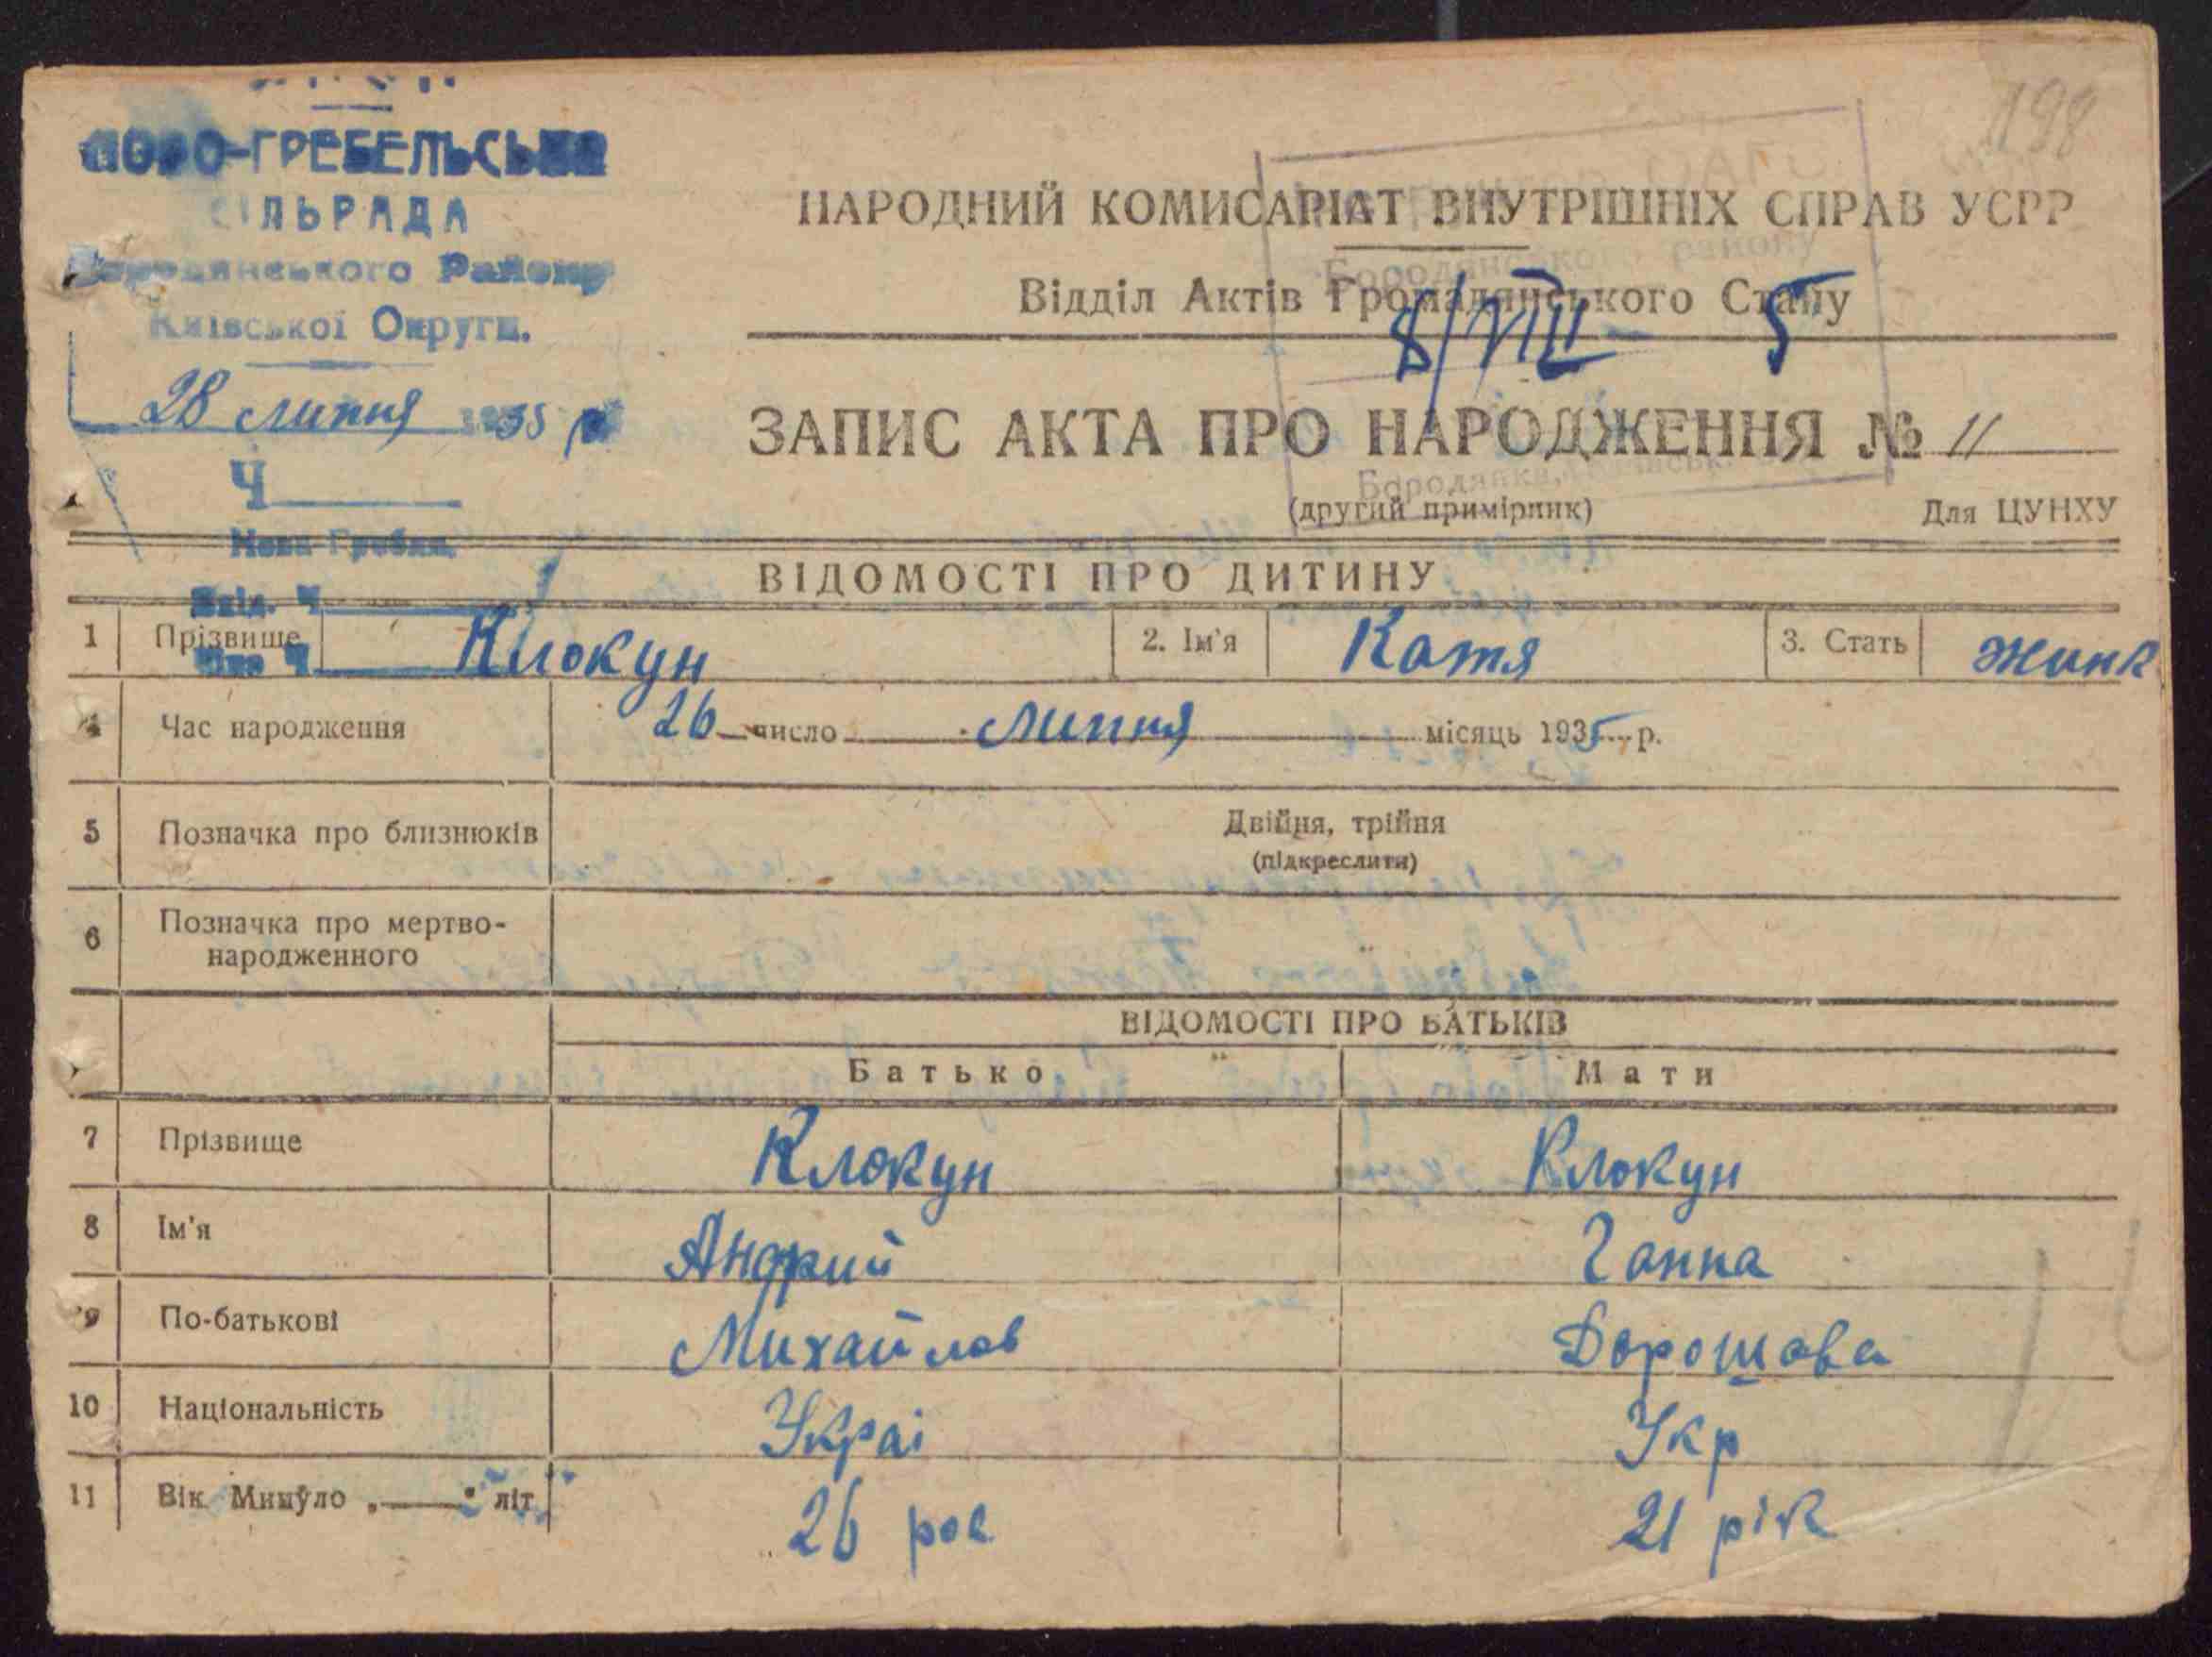 НОВО-ГРЕБЕЛЬСЬКА
СІЛЬРАДА
Бородянського Району
Київської Округи.
28 липня 1935 р
Ч
Нова-Гребля
198
НАРОДНИЙ КОМИСАРІАТ ВНУТРІШНІХ СПРАВ УСРР
Відділ Актів Громадянського Стану
Бородянського району
8/VIII- 5
ЗАПИС АКТА ПРО НАРОДЖЕННЯ № 11
Бородянка,
(другий примірник) Для ЦУНХУ
ВІДОМОСТІ ПРО ДИТИНУ
Вхід. Ч
1 Прізвище Клокун 2. Ім'я Катя 3. Стать жинк
4 Час народження 26 число липня місяць 1935 р.
5 Позначка про близнюків Двійня, трійня
(підкреслити)
6 Позначка про мертво-
народженного
ВІДОМОСТІ ПРО БАТЬКІВ
Батько Мати
7 Прізвище Клокун Клокун
8 Ім'я Андрий Ганна
9 По-батькові Михайлов Дорошова
10 Національність Украі Укр
11 Вік Минуло „—" літ 26 рок 21 рік